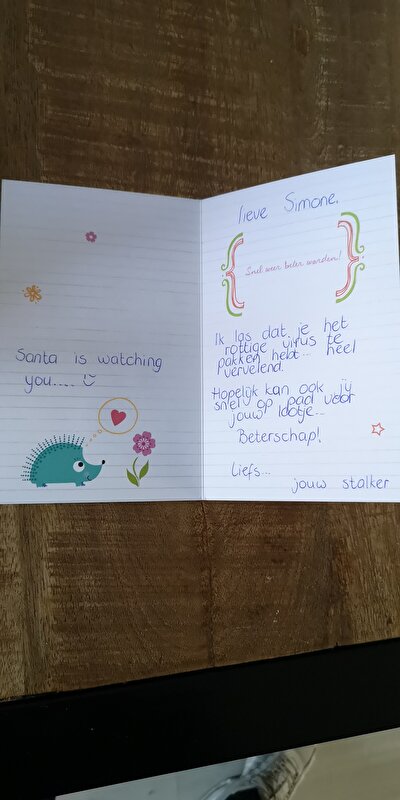 Santa is watching
you.... ☺
lieve Simone,
Snel weer beter worden!
Ik las dat je het
rottige virus te
pakken hebt... heel
vervelend.
Hopelijk kan ook jij
snel op pad voor
jouw lootje...
Beterschap!
Liefs...
jouw stalker